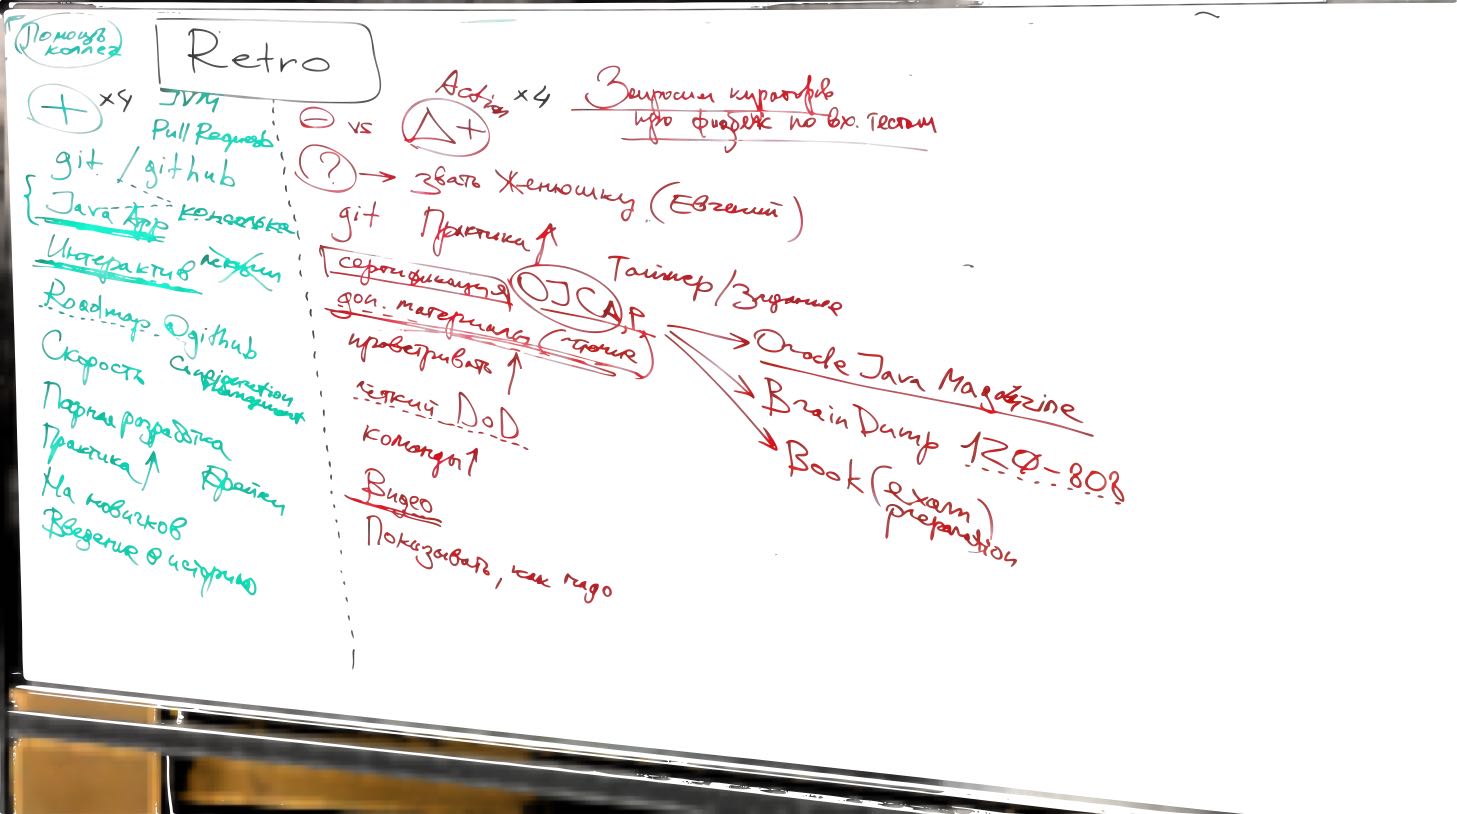 Помощь
коллег
Retro
+ ×4
JVM
Pull Requests
git / github
Java App консолька
Интерактив лекции
Roadmap @github
Скорость
Configuration
Management
Парная разработка
Практика ↑
Брейки
На новичков
Введение в историю
⊖ vs Δ+
Action ×4
Запросил кураторов
про фидбек по вх. тестам
? → звать Женюшку (Евгений)
git
Практика ↑
сертификация OJCA,P,
Таймер/Задание
доп. материалы
проветривать ↑
чёткий DoD
команды ↑
Видео
Показывать, как надо
→ Oracle Java Magazine
→ BrainDump 1Z0-808
→ Book (exam
preparation)